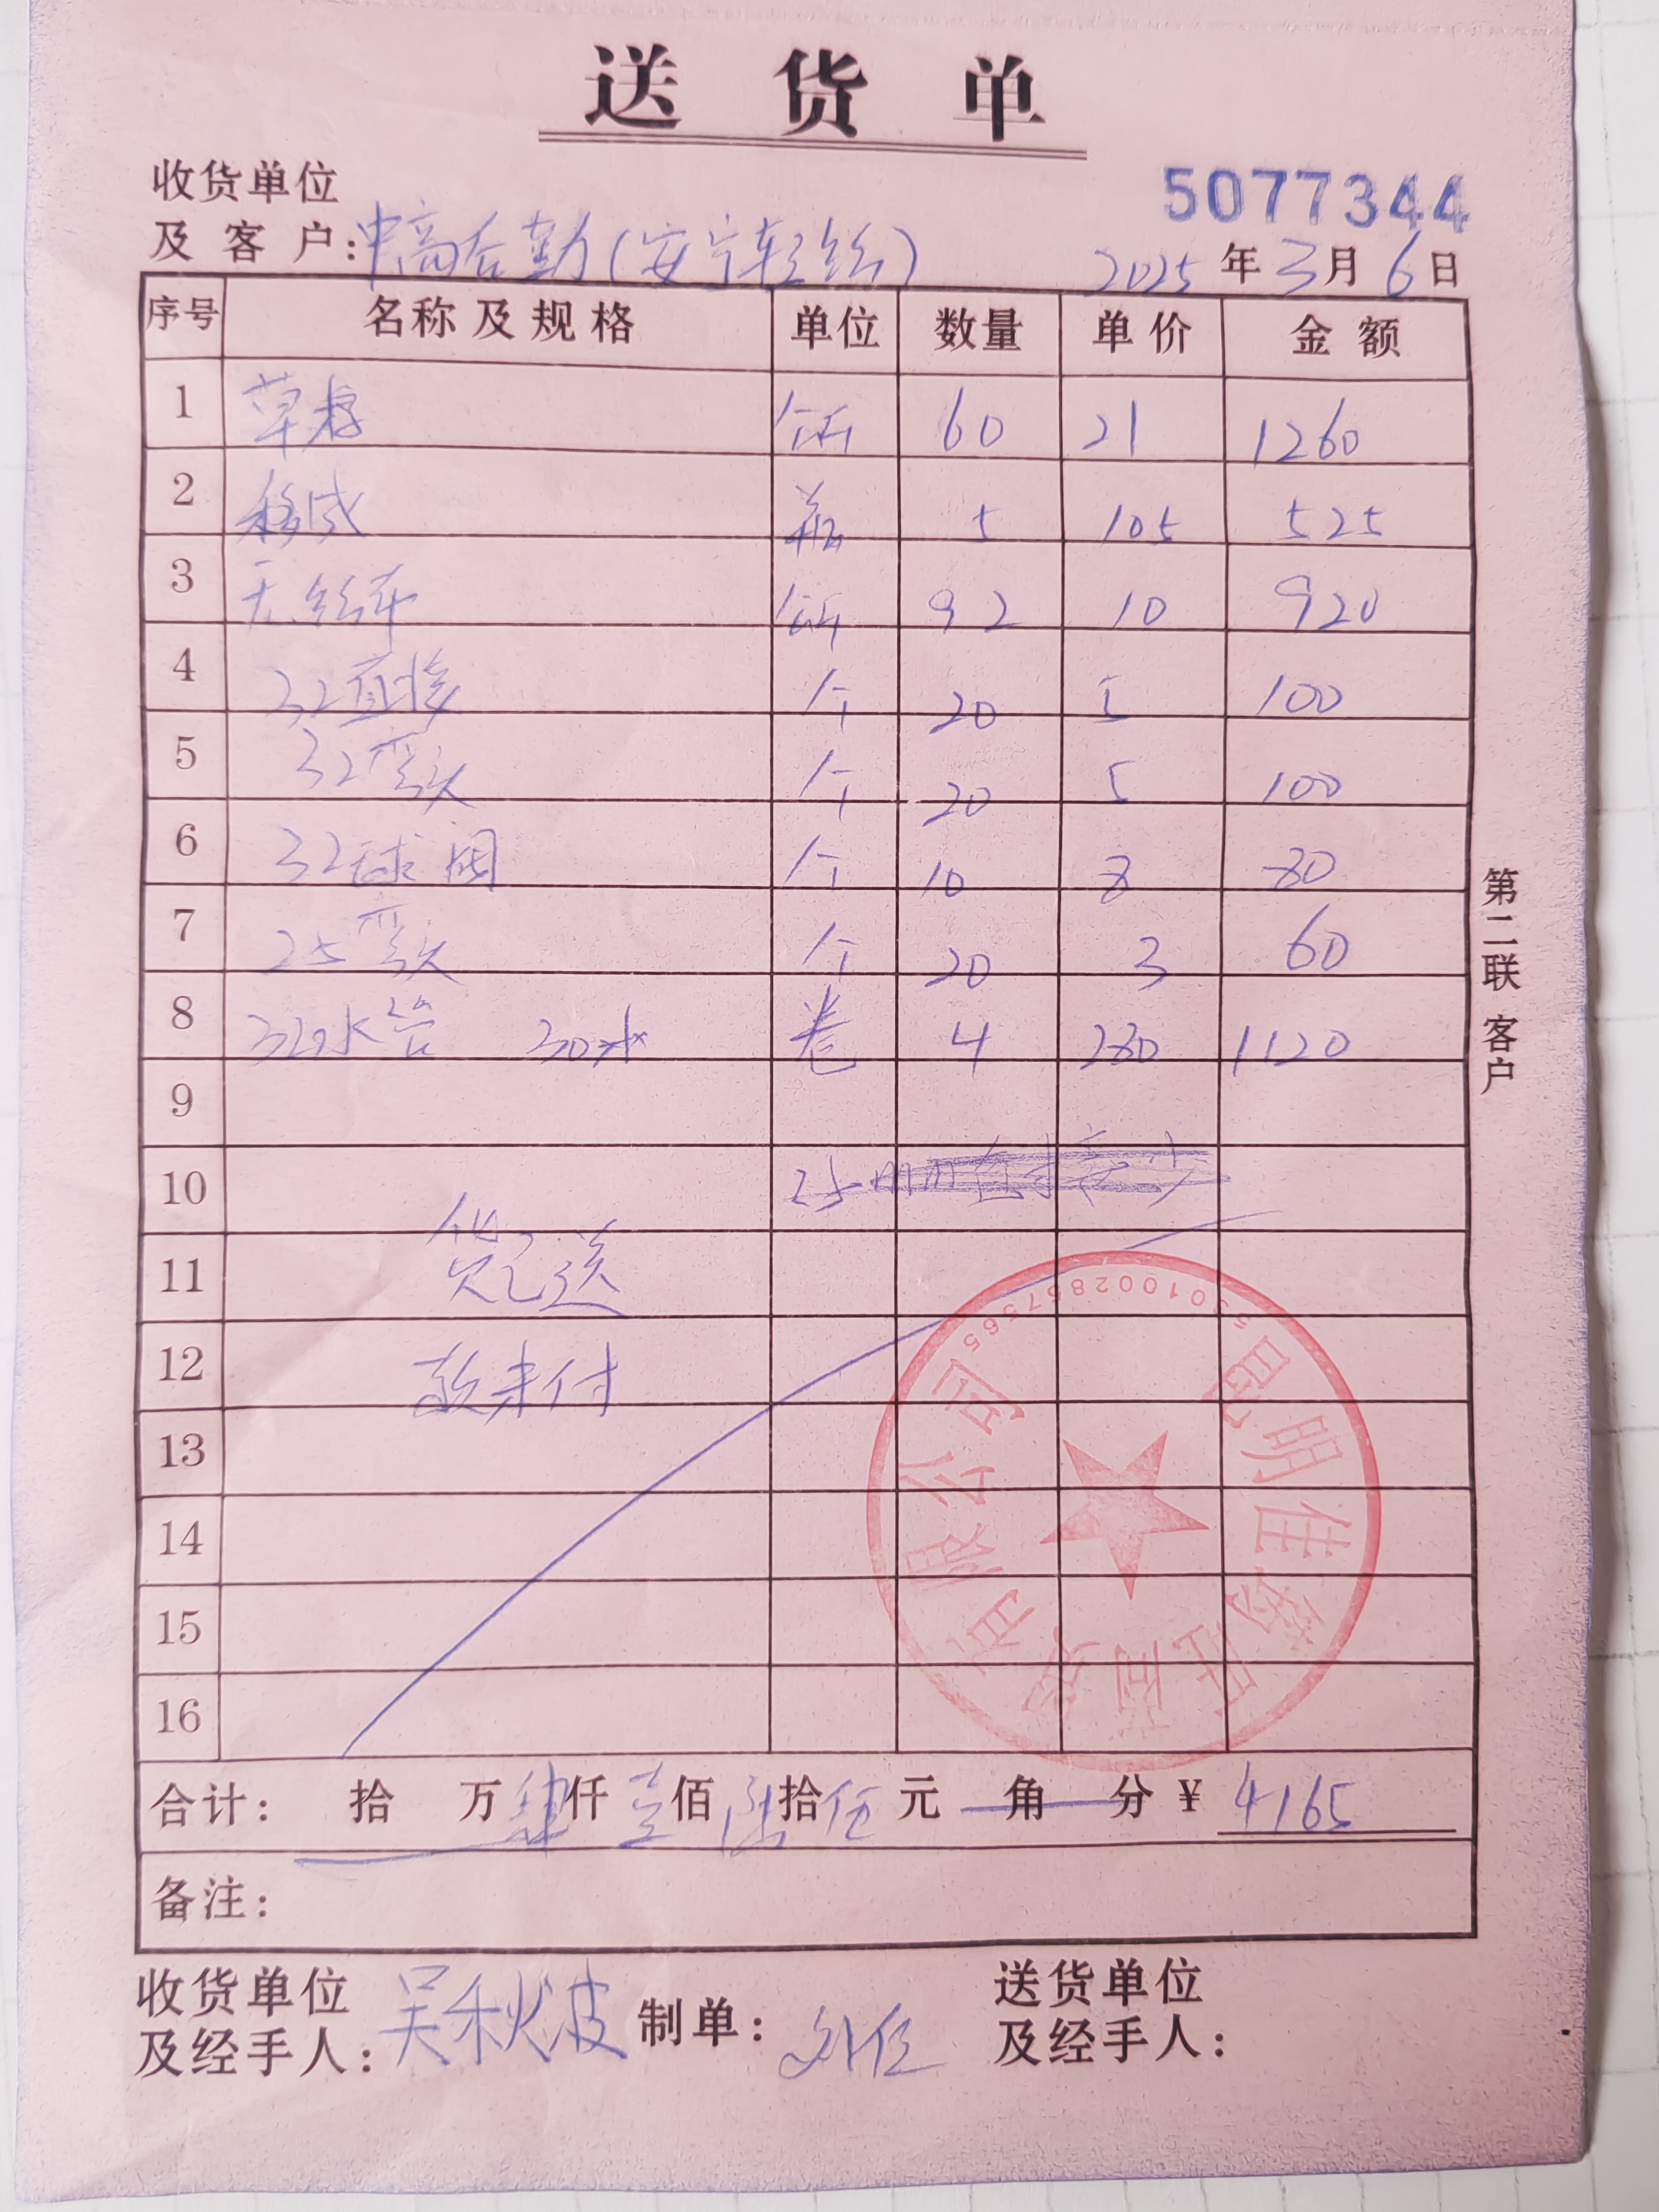 送 货 单
收货单位
及 客 户：中高后勤(安宁轻纺)
5077344
2025 年 3 月 6 日
序号 名称及规格 单位 数量 单价 金额
1 草籽 60 21 1260
2 移成 瓶 5 105 525
3 无纺布 92 10 920
4 32直接 个 20 5 100
5 32弯头 个 20 5 100
6 32球阀 个 10 8 80
7 25弯头 个 20 3 60
8 32水管 30米 卷 4 280 1120
9
10 25mm
11 货已送
12 款未付
13
14
15
16
合计： 拾 万 肆仟 壹佰 陆拾 伍元 角 分 ¥ 4165
备注：
收货单位
及经手人：吴秋波
制单：
送货单位
及经手人：
第二联 客户
昆明佳
有限公司